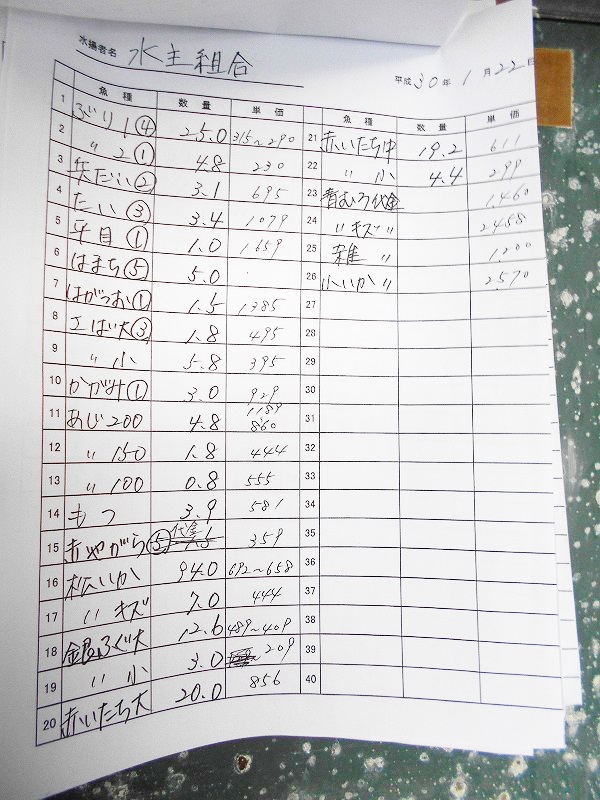 水揚者名 水主組合
平成30年1月22日
魚種 数量 単価
1 ぶり1④ 25.0 315~290
2 〃2① 4.8 230
3 矢だい② 3.1 695
4 たい③ 3.4 1079
5 平目① 1.0 1659
6 はまち⑤ 5.0
7 はがつお① 1.5 1385
8 エば大③ 1.8 495
9 〃小 5.8 395
10 かがみ① 3.0 929
11 あじ200 4.8 1189 860
12 〃150 1.8 444
13 〃100 0.8 555
14 もつ 3.9 581
15 赤やがら⑤ 代金 359
16 松いか 94.0 692~658
17 〃キズ 7.0 444
18 銀ふぐ大 12.6 489~409
19 〃小 3.0 209
20 赤いたち大 20.0 856
魚種 数量 単価
21 赤いたち中 19.2 611
22 〃小 4.4 299
23 青むろ代金 1460
24 〃キズ〃 2458
25 雑〃 1200
26 小いか〃 2570
27
28
29
30
31
32
33
34
35
36
37
38
39
40